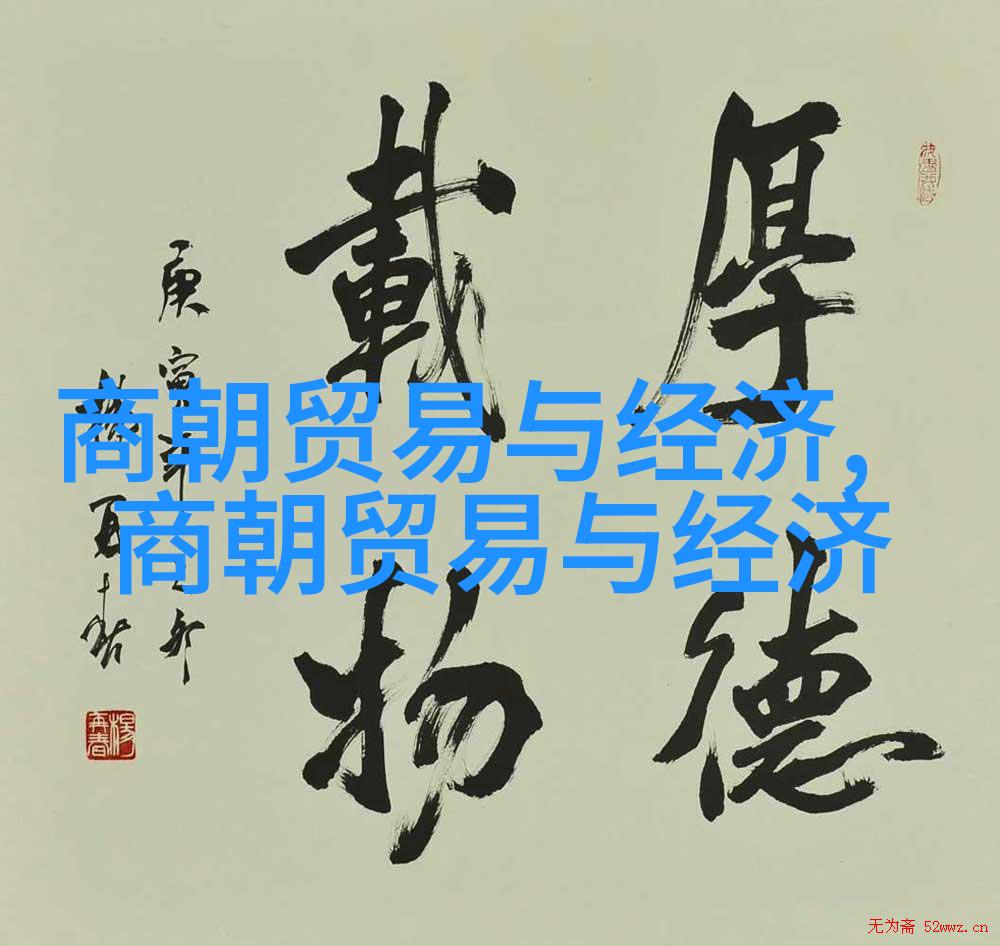 厚德
載物
庚寅年
楊再春
商朝贸易与经济,
商朝贸易与经济
楊再春
无为斋 52wwz.cn